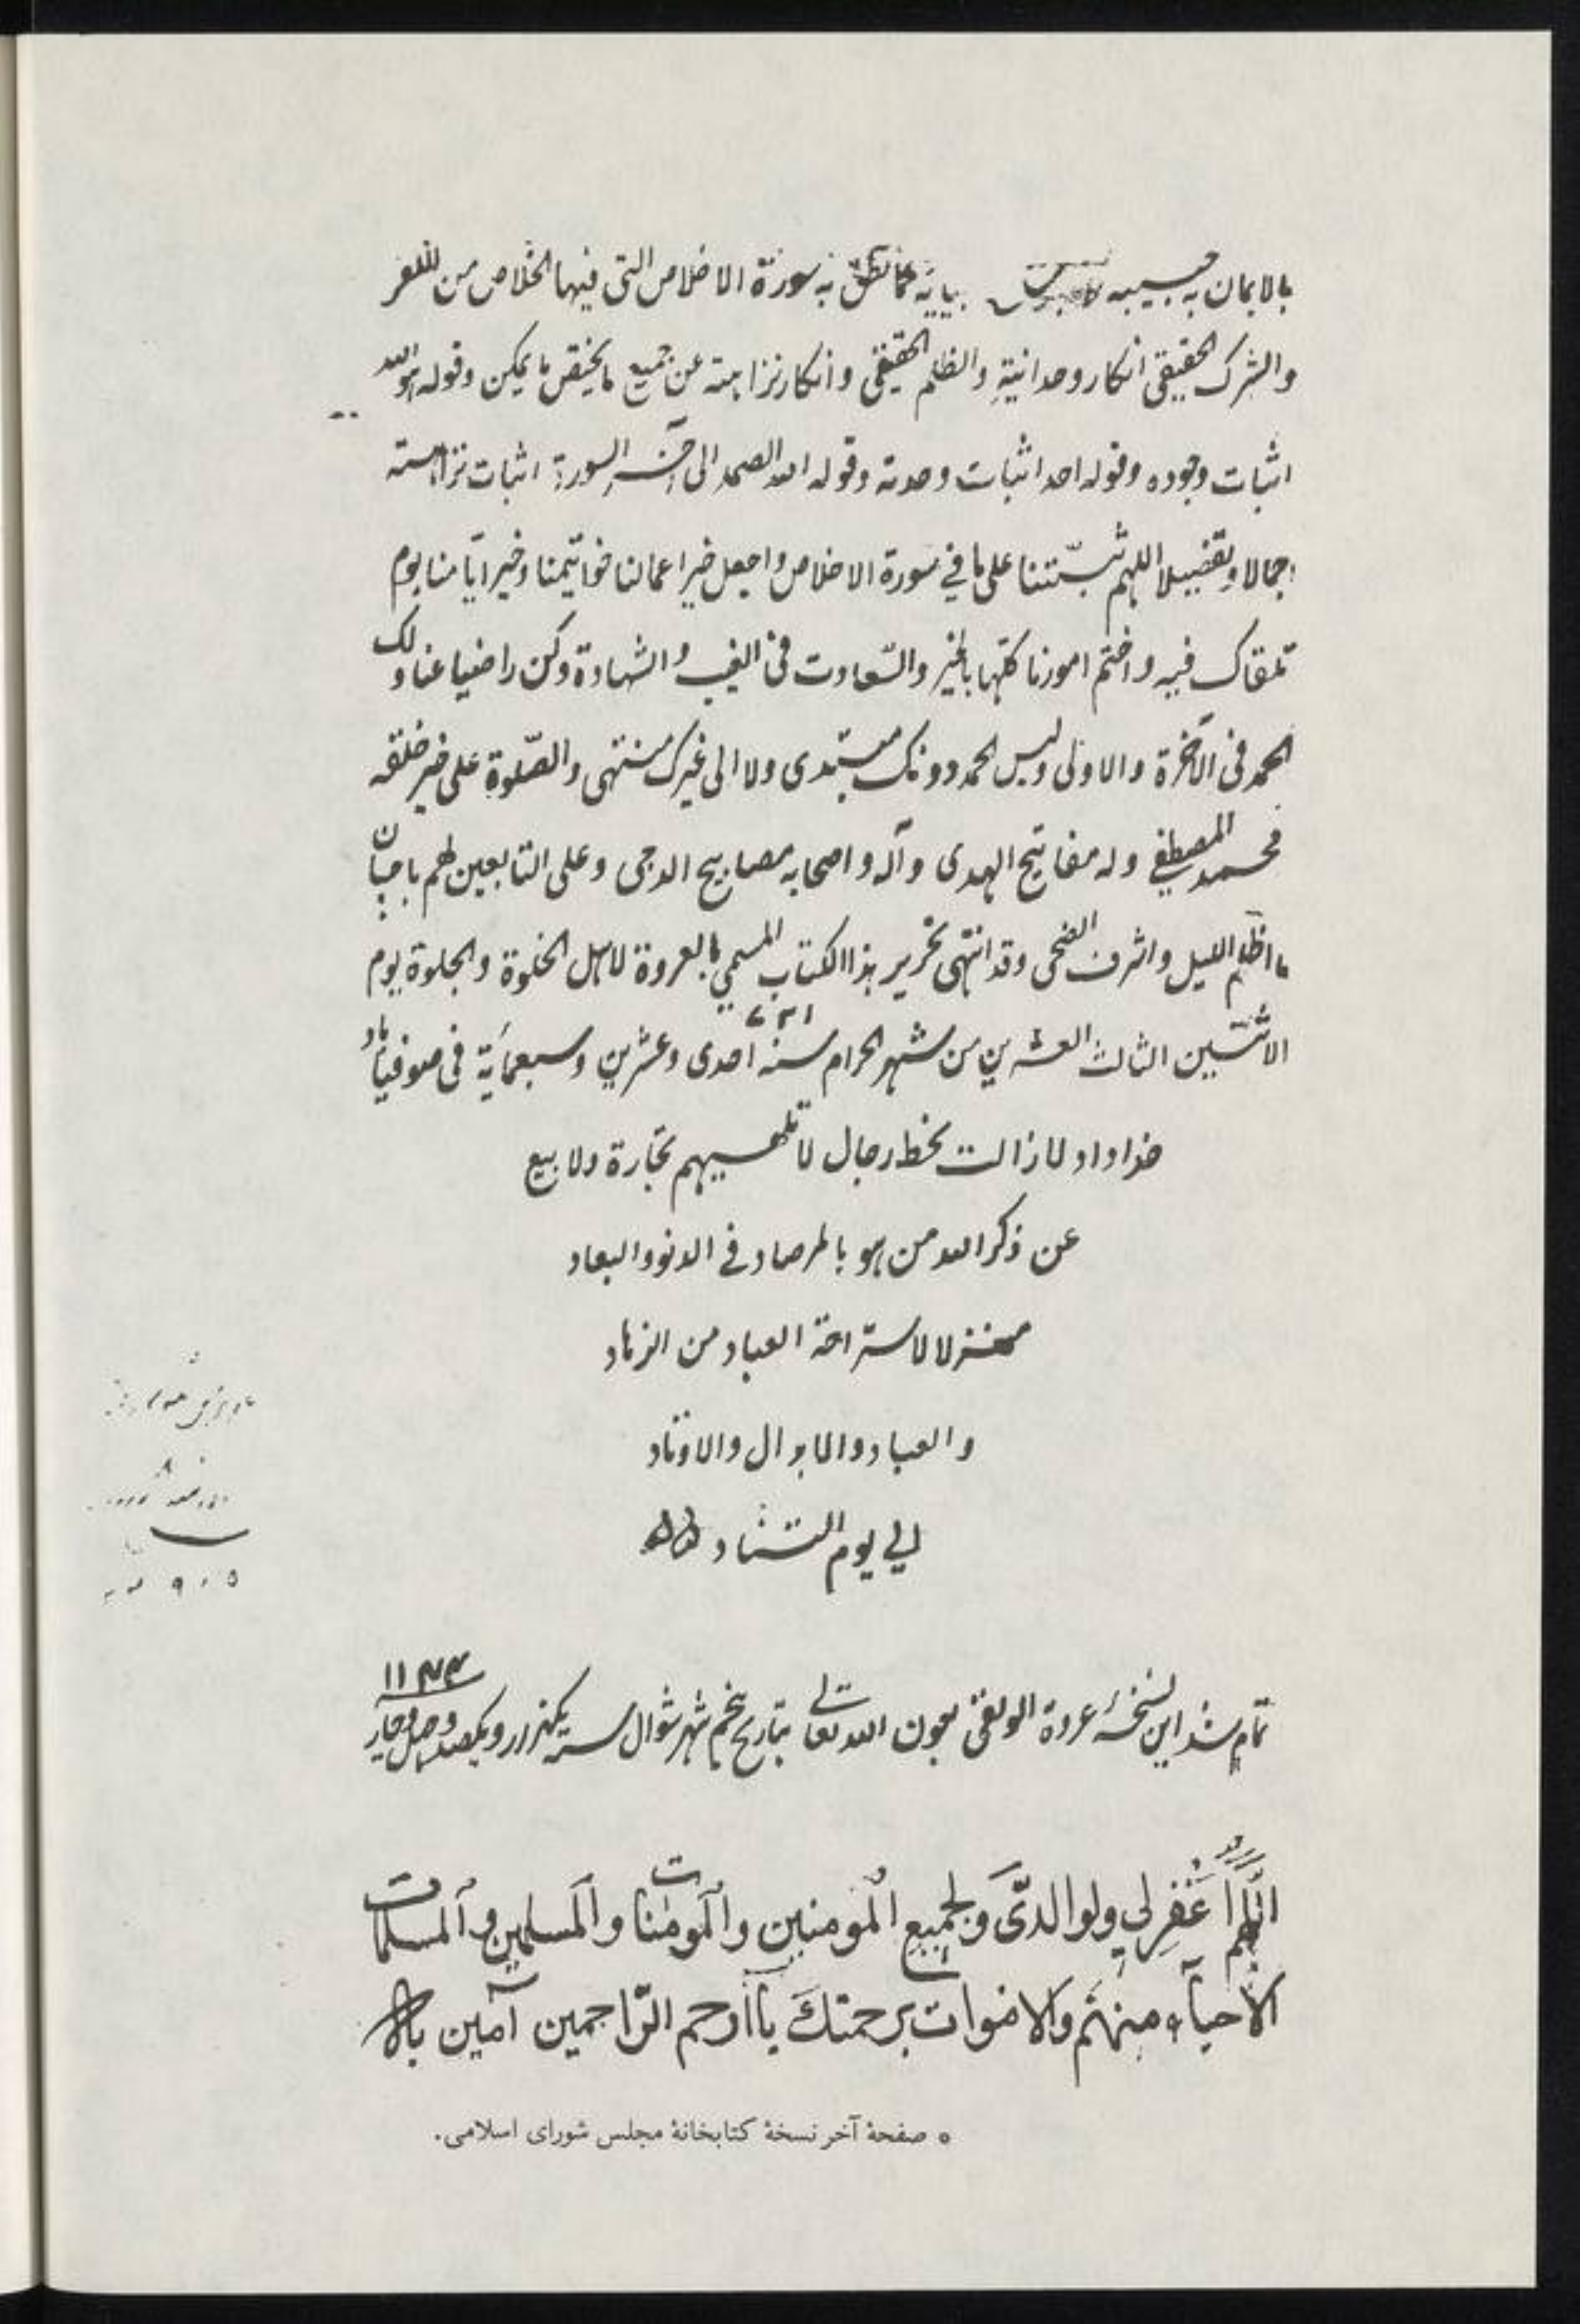 بالایمان به حبیبه بیانه کما نطق به سورة الاخلاص التی فیها الخلاص من الکفر
والشرک الحقیقی انکار وحدانیتهِ والظلم الحقیقی وانکار نزاهته عن جمیع ما یختص بالممکن وقوله هو الله
اثبات وجوده وقوله احد اثبات وحدته وقوله الله الصمد الی آخر السورة اثبات نزاهته
اجمالا وتفصیلا اللهم ثبّتنا علی ما فی سورة الاخلاص واجعل خیر اعمالنا خواتیمنا وخیر ایّامنا یوم
نلقاک فیه واختم امورنا کلّها بالخیر والسّعادت فی الغیب والشهادة وکن راضیا عنا ولک
الحمد فی الآخرة والاولی ولیس الحمد دونک مبتدی ولا الی غیرک منتهی والصّلوة علی خیر خلقه
محمد المصطفی وله مفاتیح الهدی وآله واصحابه مصابیح الدجی وعلی التابعین لهم باحسان
ما اظلم اللیل واشرف الضحی وقد انتهی تحریر هذا الکتاب المسمی بالعروة لاهل الخلوة والجلوة یوم
۷۲۱
الاثنین الثالث العشرین من شهر الحرام سنه احدی وعشرین وسبعمائة فی صوفیاباد
خداداد لا زالت محط رجال لا تلهیهم تجارة ولا بیع
عن ذکر الله من هو بالمرصاد فی الدنو والبعاد
منزلا لاستراحة العباد من الزهاد
والعباد والابدال والاوتاد
الی یوم التناد
۱۱۴۴
تمام شد این نسخهٔ عروة الوثقی بعون الله تعالی بتاریخ پنجم شهر شوال سنه یکهزار و یکصد و چهل و چهار
اللّهم اغفِر لی ولوالدیَّ ولجمیع المؤمنین والمؤمنات والمسلمین والمسلمات
الاحیآء منهم والاموات برحمتک یا ارحم الرّاحمین آمین
٥ صفحهٔ آخر نسخهٔ کتابخانهٔ مجلس شورای اسلامی.